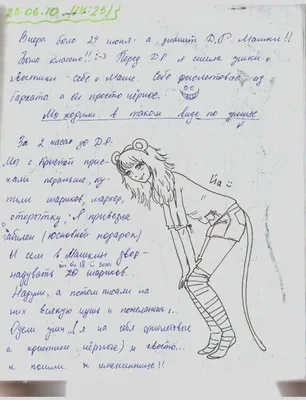 25.06.10 (14:25)
Вчера было 24 июня - а, значит Д.Р. Машки!!
Было классно!! :-) Перед Д.Р я сшила ушки и
хвостики - себе и Маше. Себе фиолетовые из
бархата а ей просто чёрное.
Мы ходили в таком виде по улице
За 2 часа до Д.Р.
Мы с Кристей прие-
хали пораньше, ку-
пили шариков, маркер,
открытку, Я привезла
(основной подарок)
И сели в Машкин двор-
надувать 20 шариков.
Надули, а потом писали на
них всякую и пожелания..
Одели уши (я на себя фиолетовые
а кристине чёрное) и хвосты...
и пошли к имениннице!!
Йа